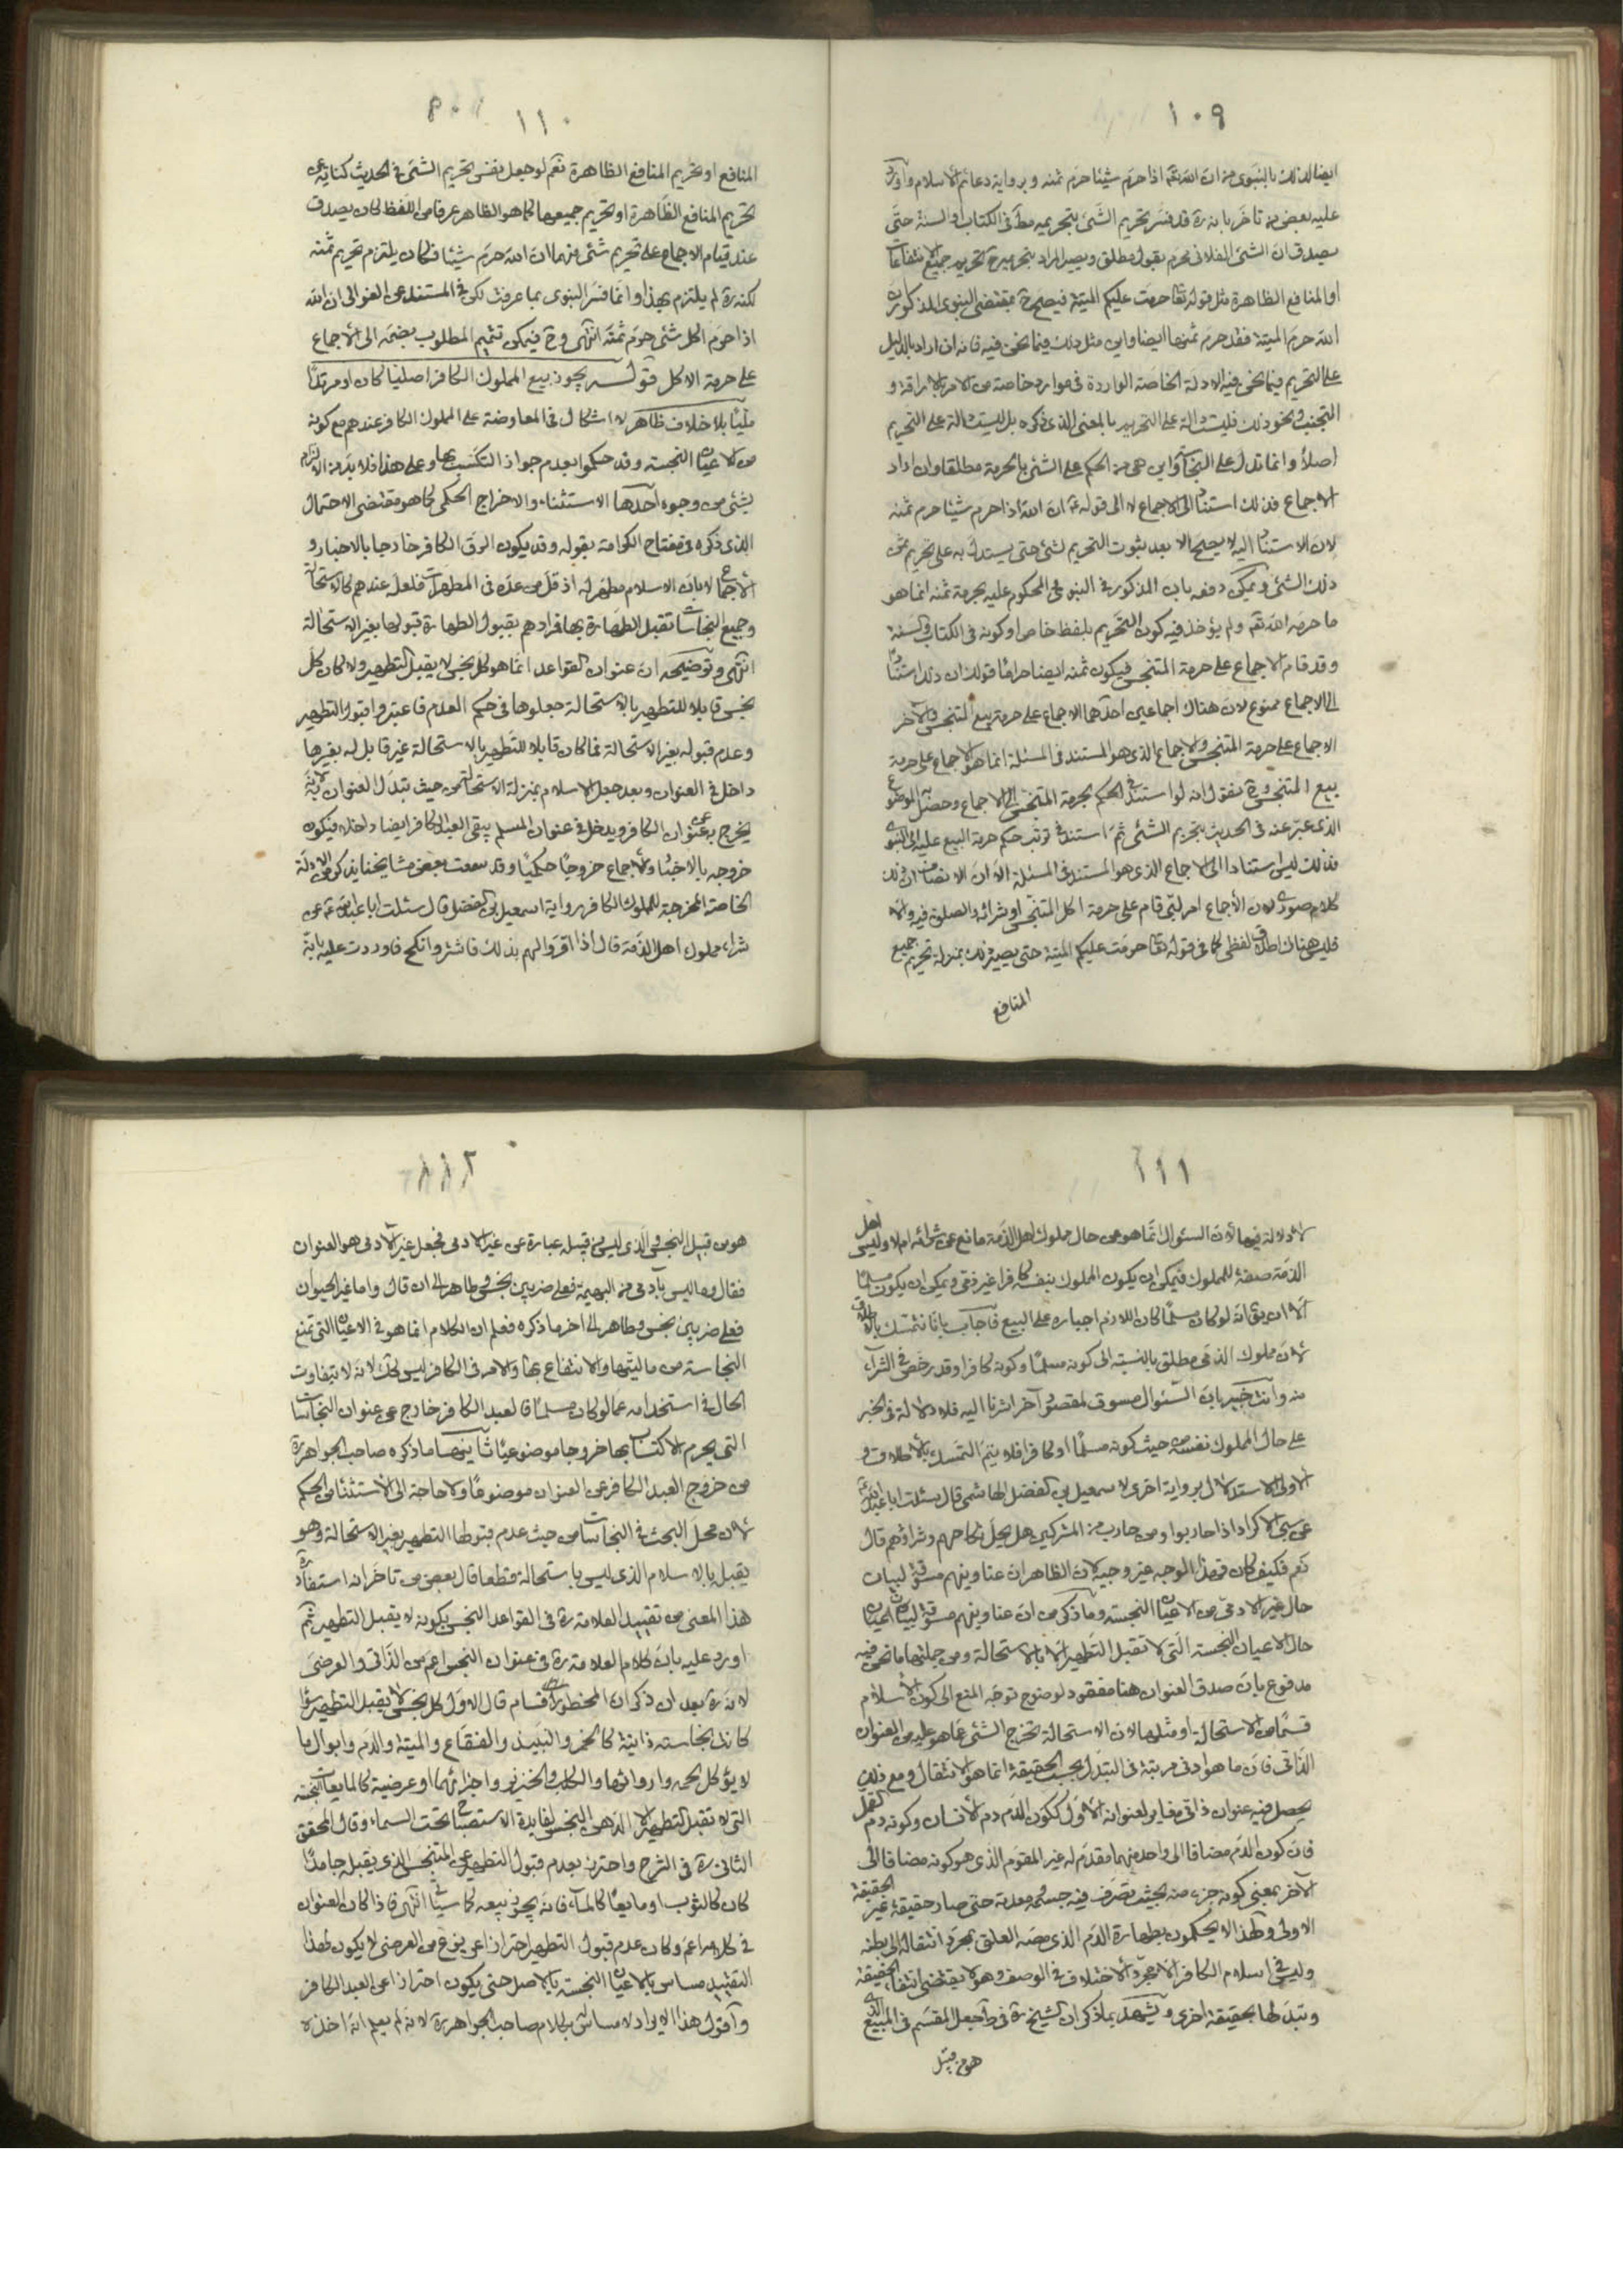 ١٠٩
ايضا لذلك بالنبوى من ان الله تعالى اذا حرم شيئا حرم ثمنه وبرواية دعائم الاسلام واورد
عليه بعض من تاخر بانه ره قد فسر تحريم الشئ بتحريمه مط فى الكتاب او السنة حتى
يصدق ان الشئ الفلانى محرم بقول مطلق ويصير المراد بتحريمه ح تحريم جميع الانتفاعات
او المنافع الظاهرة مثل قوله تعا حرمت عليكم الميتة فيصح ح بمقتضى النبوى المذكور ان
الله حرم الميتة فقد حرم ثمنها ايضا واين مثل ذلك فيما نحن فيه فانه ان اراد بالدليل
على التحريم فيما نحن فيه الادلة الخاصة الواردة فى موارد خاصة من الامر بالاراقة و
التجنب ونحو ذلك فليست دالة على التحريم بالمعنى الذى ذكره بل ليست دالة على التحريم
اصلاً وانما تدل على النجاسة واين هى من الحكم على الشئ بالحرمة مطلقا وان اراد
الاجماع فذلك استناد الى الاجماع لا الى قوله ع ان الله اذا حرم شيئا حرم ثمنه
لان الاستناد اليه لا يصح الا بعد ثبوت التحريم لشئ حتى يستدل به على تحريم ثمن
ذلك الشئ ويمكن دفعه بان المذكور فى النبوى المحكوم عليه بحرمة ثمنه انما هو
ما حرمه الله تعا ولم يؤخذ فيه كون التحريم بلفظ خاص او كونه فى الكتاب والسنة
وقد قام الاجماع على حرمة المتنجس فيكون ثمنه ايضا حراما قولك ان ذلك استناد
الى الاجماع ممنوع لان هناك اجماعين احدهما الاجماع على حرمة بيع المتنجس والاخر
الاجماع على حرمة المتنجس والاجماع الذى هو المستند فى المسئلة انما هو الاجماع على حرمة
بيع المتنجس وح نقول انه لو استند فى الحكم بحرمة المتنجس الى الاجماع وحصل به الموضوع
الذى عبر عنه فى الحديث بتحريم الشئ ثم استند فى ترتب حكم حرمة البيع عليه الى النبوى
فذلك ليس استنادا الى الاجماع الذى هو المستند فى المسئلة الا ان الانصاف ان ذلك
كلام صورى لان الأجماع امر لبى قام على حرمة اكل المتنجس او شرائه والصلوة فيه والا
فليس هناك اطلاق لفظى كما فى قوله تعا حرمت عليكم الميتة حتى يصير ذلك بمنزلة تحريم جميع
المنافع
١١٠
المنافع او تحريم المنافع الظاهرة نعم لو جعل نفس تحريم الشئ فى الحديث كناية عن
تحريم المنافع الظاهرة او تحريم جميعها كما هو الظاهر عرفا من اللفظ لكان يصدق
عند قيام الاجماع على تحريم شئ منها ان الله حرم شيئا فكان يلتزم تحريم ثمنه
لكنه ره لم يلتزم بهذا وانما فسر النبوى بما عرفت لكن فى المستند عن الغوالى ان الله
اذا حرم اكل شئ حرم ثمنه انتهى وح فيمكن تتميم المطلوب بضمه الى الأجماع
على حرمة الاكل قوله يجوز بيع المملوك الكافر اصليا كان او مرتدا
مليا بلا خلاف ظاهر لا اشكال فى المعاوضة على المملوك الكافر عندهم مع كونه
من الاعيان النجسة وقد حكموا بعدم جواز التكسب بها وعلى هذا فلا بد من الالتزام
بشئ من وجوه احدها الاستثناء والاخراج الحكمى كما هو مقتضى الاحتمال
الذى ذكره فى مفتاح الكرامة بقوله وقد يكون الرق الكافر خارجا بالاخبار و
الأجماع لا بان الاسلام مطهر له اذ قل من عده فى المطهرات فلعله عندهم كالاستحالة
وجميع النجاسات تقبل الطهارة بها فمرادهم بقبول الطهارة قبولها بغير الاستحالة
انتهى وتوضيحه ان عنوان القواعد انما هو كل نجس لا يقبل التطهير ولما كان كل
نجس قابلا للتطهير بالاستحالة جعلوها فى حكم العدم فاعتبروا قبول التطهير
وعدم قبوله بغير الاستحالة فما كان قابلا للتطهير بالاستحالة غير قابل له بغيرها
داخل فى العنوان وبعد جعل الاسلام بمنزلة الاستحالة من حيث تبدل العنوان لانه
يخرج به عن عنوان الكافر ويدخل فى عنوان المسلم يبقى العبد الكافر ايضا داخلا فيكون
خروجه بالاخبار والأجماع خروجا حكميا وقد سمعت بعض مشايخنا يذكر من الادلة
الخاصة المخرجة للمملوك الكافر رواية اسمعيل بن الفضل قال سئلت ابا عبد الله ع عن
شراء مملوك اهل الذمة قال اذا اقروا لهم بذلك فاشتر وانكح فاوردت عليه بانه
١١١
لا دلالة فيها لأن السئوال انما هو من حال مملوك اهل الذمة مانع عن شرائه ام لا وليس اهل
الذمة صفة للمملوك فيمكن ان يكون المملوك بنفسه كافرا غير ذمى ويمكن ان يكون مسلما
الا ان يق انه لو كان مسلما كان اللازم اجباره على البيع فاجاب بانا نتمسك بالاطلاق
لأن مملوك الذمى مطلق بالنسبة الى كونه مسلما وكونه كافرا وقد رخص فى الشراء
منه وانت خبير بان السئوال مسوق لمقصود آخر اشرنا اليه فلا دلالة فى الخبر
على حال المملوك نفسه من حيث كونه مسلما او كافرا فلا يتم التمسك بالأطلاق و
الاولى الاستدلال برواية اخرى لاسمعيل بن الفضل الهاشمى قال سئلت ابا عبد الله ع
عن سبى الاكراد اذا حاربوا ومن حارب من المشركين هل يحل نكاحهم وشراؤهم قال
نعم فكيف كان فهذا الوجه غير وجيه لان الظاهر ان عناوينهم مسوقة لبيان
حال غير الادمى من الاعيان النجسة وما ذكر من ان عناوينهم مسوقة لبيان
حال الاعيان النجسة التى لا تقبل التطهير الا بالاستحالة ومن جملتها ما نحن فيه
مدفوع بان صدق العنوان هنا مفقود لوضوح توجه المنع الى كون الأسلام
قسما من الاستحالة او مثلها لان الاستحالة تخرج الشئ عما هو عليه من العنوان
الذاتى فان ما هو ادنى مرتبة فى التبدل بحسب الحقيقة انما هو الانتقال ومع ذلك
يحصل فيه عنوان ذاتى مغاير لعنوانه الأول ككون الدم دم الأنسان وكونه دم القمل
فان كون الدم مضافا الى واحد منهما مقدم له غير المقوم الذى هو كونه مضافا الى
الآخر بمعنى كونه جزء منه بحيث تصرف فيه جسمه ومعدته حتى صار حقيقة غير الحقيقة
الاولى ولهذا لا يحكمون بطهارة الدم الذى مصه العلق بمجرد انتقاله الى بطنه
وليس فى اسلام الكافر الا مجرد الأختلاف فى الوصف وهو لا يقتضى انتفاء الحقيقة
وتبدلها بحقيقة اخرى ويشهد بما ذكر ان الشيخ ره فى ط جعل المقسم فى المبيع الذى
هو من قبيل
١١٢
هو من قبيل النجس الذى ليس من قبيله عبارة عن غير الادمى فجعل غير الآدمى هو العنوان
فقال وما ليس بآدمى من البهيمة فعلى ضربين نجس وطاهر الى ان قال واما غير الحيوان
فعلى ضربين نجس وطاهر الى اخر ما ذكره فعلم ان الكلام انما هو فى الاعيان التى تمنع
النجاسة من ماليتها والانتفاع بها والامر فى الكافر ليس كك لانه لا تتفاوت
الحال فى استخدامه عما لو كان مسلما فالعبد الكافر خارج عن عنوان النجاسات
التى يحرم الاكتساب بها خروجا موضوعيا ثانيها ما ذكره صاحب الجواهر ره
من خروج العبد الكافر عن العنوان موضوعا ولا حاجة الى الأستثناء من الحكم
لأن محل البحث فى النجاسات من حيث عدم قبولها التطهير بغير الاستحالة وهو
يقبل بالاسلام الذى ليس باستحالة قطعا قال بعض من تاخر انه استفاد ره
هذا المعنى من تقييد العلامة ره فى القواعد النجس بكونه لا يقبل التطهير ثم
اورد عليه بان كلام العلامة ره فى عنوان النجس اعم من الذاتى والعرضى
لانه ره بعد ان ذكر ان المحظور اقسام قال الاول كل نجس لا يقبل التطهير سواء
كانت نجاسته ذاتية كالخمر والنبيذ والفقاع والميتة والدم وابوال ما
لا يؤكل لحمه وارواثها والكلب والخنزير واجزائهما او عرضية كالمايعات النجسة
التى لا تقبل التطهير الا الدهن النجس لفايدة الاستصباح تحت السماء وقال المحقق
الثانى ره فى الشرح واحترز بعدم قبول التطهير عن المتنجس الذى يقبله جامدا
كان كالثوب او مايعا كالماء فانه يجوز بيعه كما سياتى انتهى فاذا كان العنوان
فى كلامه اعم وكان عدم قبول التطهير احترازا عن نوع من العرضى لا يكون لهذا
التقييد مساس بالاعيان النجسة بالاصل حتى يكون احترازا عن العبد الكافر
واقول هذا الايراد لا مساس له بكلام صاحب الجواهر ره لانه لم يعلم انه اخذه